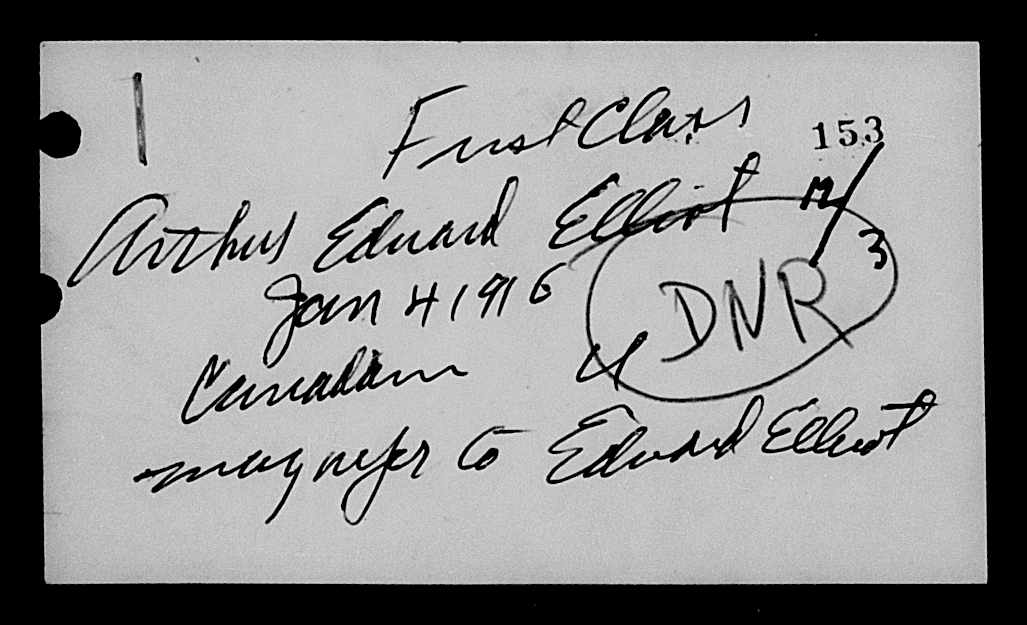 First Class
153
Arthur Edward Elliot
M/3
Jan 4 1916
DNR
Canadian 4
may refer to Edward Elliot